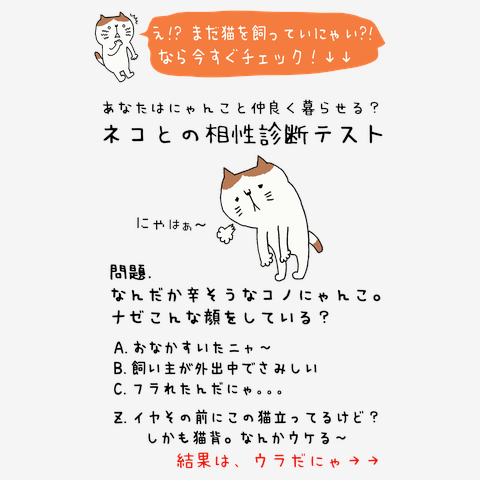 え!? まだ猫を飼っていにゃい?!
なら今すぐチェック！↓↓
あなたはにゃんこと仲良く暮らせる？
ネコとの相性診断テスト
にゃはぁ〜
問題.
なんだか辛そうなコノにゃんこ。
ナゼこんな顔をしている？
A. おなかすいたニャ〜
B. 飼い主が外出中でさみしい
C. フラれたんだにゃ。。。
Z. イヤその前にこの猫立ってるけど？
しかも猫背。なんかウケる〜
結果は、ウラだにゃ→→